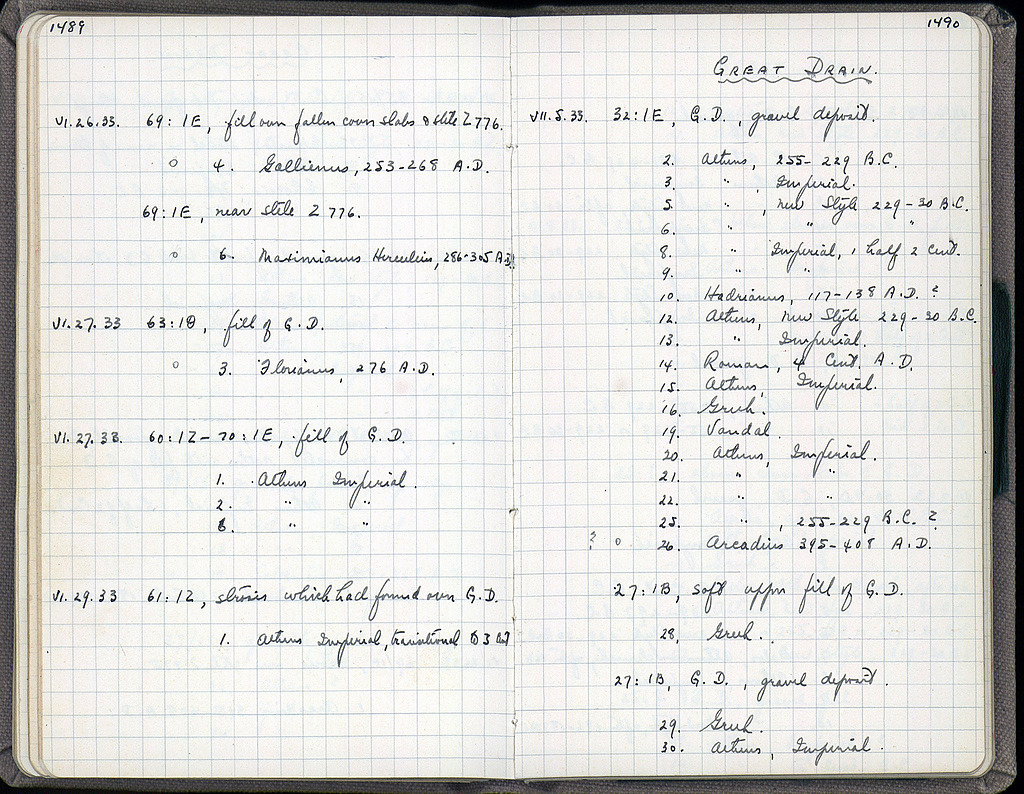 1489
VI.26.33. 69:1E, fill over fallen cover slabs & stele Z 776.
o 4. Gallienus, 253-268 A.D.
69:1E, near stele Z 776.
o 6. Maximianus Herculeius, 286-305 A.D.
VI.27.33 63:1Θ, fill of G.D.
o 3. Florianus, 276 A.D.
VI.27.33. 60:1Z - 70:1E, fill of G.D.
1. Athens Imperial.
2. " "
" "
VI.29.33 61:1Z, strosis which had formed over G.D.
1. Athens Imperial, transitional to 3 Cent
1490
GREAT DRAIN.
VII.5.33. 32:1E, G.D., gravel deposit.
2. Athens, 255-229 B.C.
3. " , Imperial.
5. " , New Style 229-30 B.C.
6. " " "
8. " Imperial, 1 half 2 Cent.
9. " "
10. Hadrianus, 117-138 A.D. ?
12. Athens, New Style 229-30 B.C.
13. " Imperial.
14. Roman, 4 Cent. A.D.
15. Athens, Imperial.
16. Greek.
19. Vandal.
20. Athens, Imperial.
21. " "
22. " "
25. " , 255-229 B.C. ?
? o 26. Arcadius 395-408 A.D.
27:1B, soft upper fill of G.D.
28. Greek.
27:1B, G.D., gravel deposit.
29. Greek.
30. Athens, Imperial.